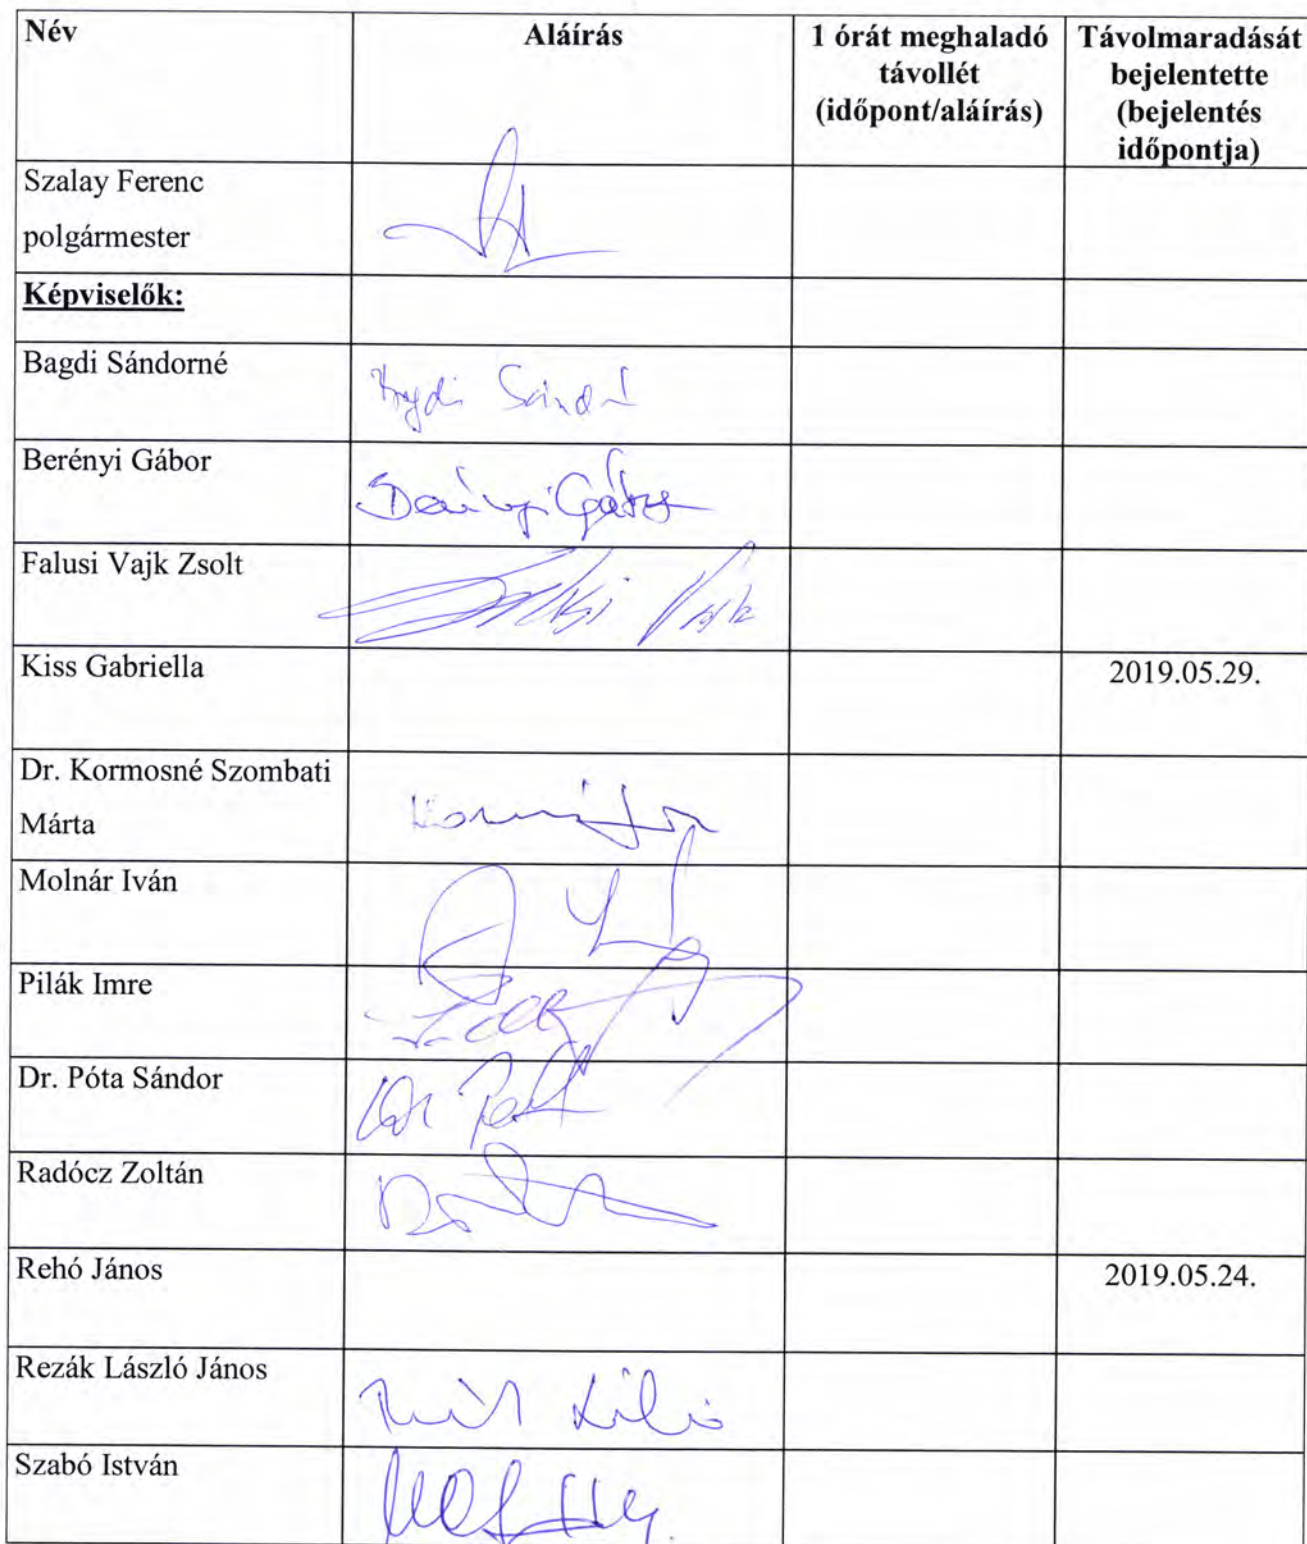 Név
Aláírás
1 órát meghaladó
távollét
(időpont/aláírás)
Távolmaradását
bejelentette
(bejelentés
időpontja)
Szalay Ferenc
polgármester
Képviselők:
Bagdi Sándorné
Berényi Gábor
Falusi Vajk Zsolt
Kiss Gabriella
2019.05.29.
Dr. Kormosné Szombati
Márta
Molnár Iván
Pilák Imre
Dr. Póta Sándor
Radócz Zoltán
Rehó János
2019.05.24.
Rezák László János
Szabó István